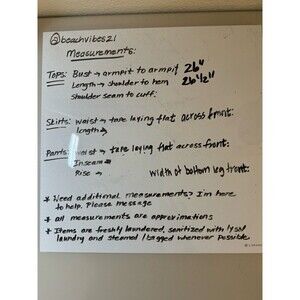 @beachvibes21
Measurements:
Tops: Bust → armpit to armpit 26"
Length → shoulder to hem 26 1/2"
Shoulder seam to cuff:
Skirts: Waist → tape laying flat across front:
length →
Pants: Waist → tape laying flat across front:
Inseam →
Rise → Width of bottom leg front:
* Need additional measurements? I'm here
to help. Please message
* All measurements are approximations
* Items are freshly laundered, sanitized with lysol
laundry and steamed / bagged whenever possible